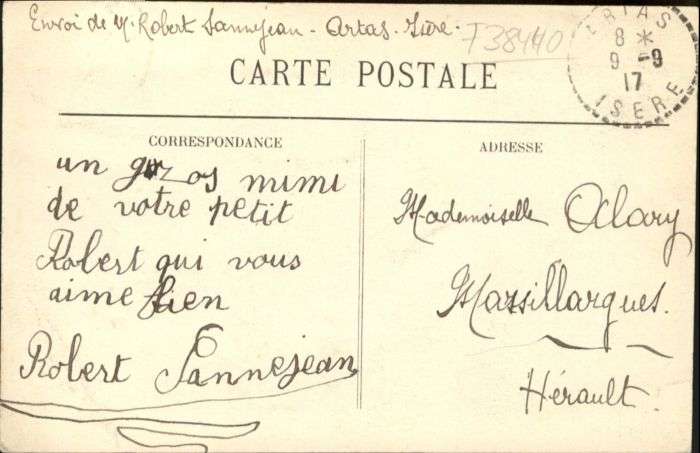 Envoi de M. Robert Pannejean - Artas - Isère.
T38440
ARTAS
8 *
9 -9
17
ISERE
CARTE POSTALE
CORRESPONDANCE
un gozos mimi
de votre petit
Robert qui vous
aime bien
Robert Pannejean
ADRESSE
Mademoiselle Alary
Massillargues.
Hérault.